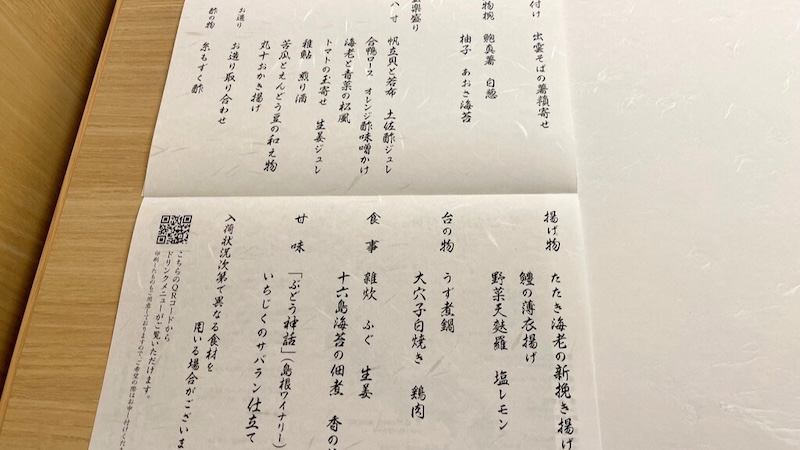 付け 出雲そばの箸積寄せ
物椀 鮑真薯 白葱
柚子 あおさ海苔
楽盛り
八寸 帆立貝と若布 土佐酢ジュレ
合鴨ロース オレンジ酢味噌かけ
海老と青菜の松風
トマトの玉寄せ 生姜ジュレ
稚鮎 煎り酒
苦瓜とえんどう豆の和え物
丸十おかき揚げ
お造り お造り取り合わせ
酢の物 糸もずく酢
揚げ物 たたき海老の新挽き揚げ
鱧の薄衣揚げ
野菜天麩羅 塩レモン
台の物 うず煮鍋
大穴子白焼き 鶏肉
食事 雑炊 ふぐ 生姜
十六島海苔の佃煮 香の
甘味 「ぶどう神話」(島根ワイナリー)
いちじくのサバラン仕立て
入荷状況次第で異なる食材を
用いる場合がございま
こちらのQRコードから
ドリンクメニューがご覧いただけます。
印刷したものもご用意しておりますので、ご希望の際はお申し付けくだ